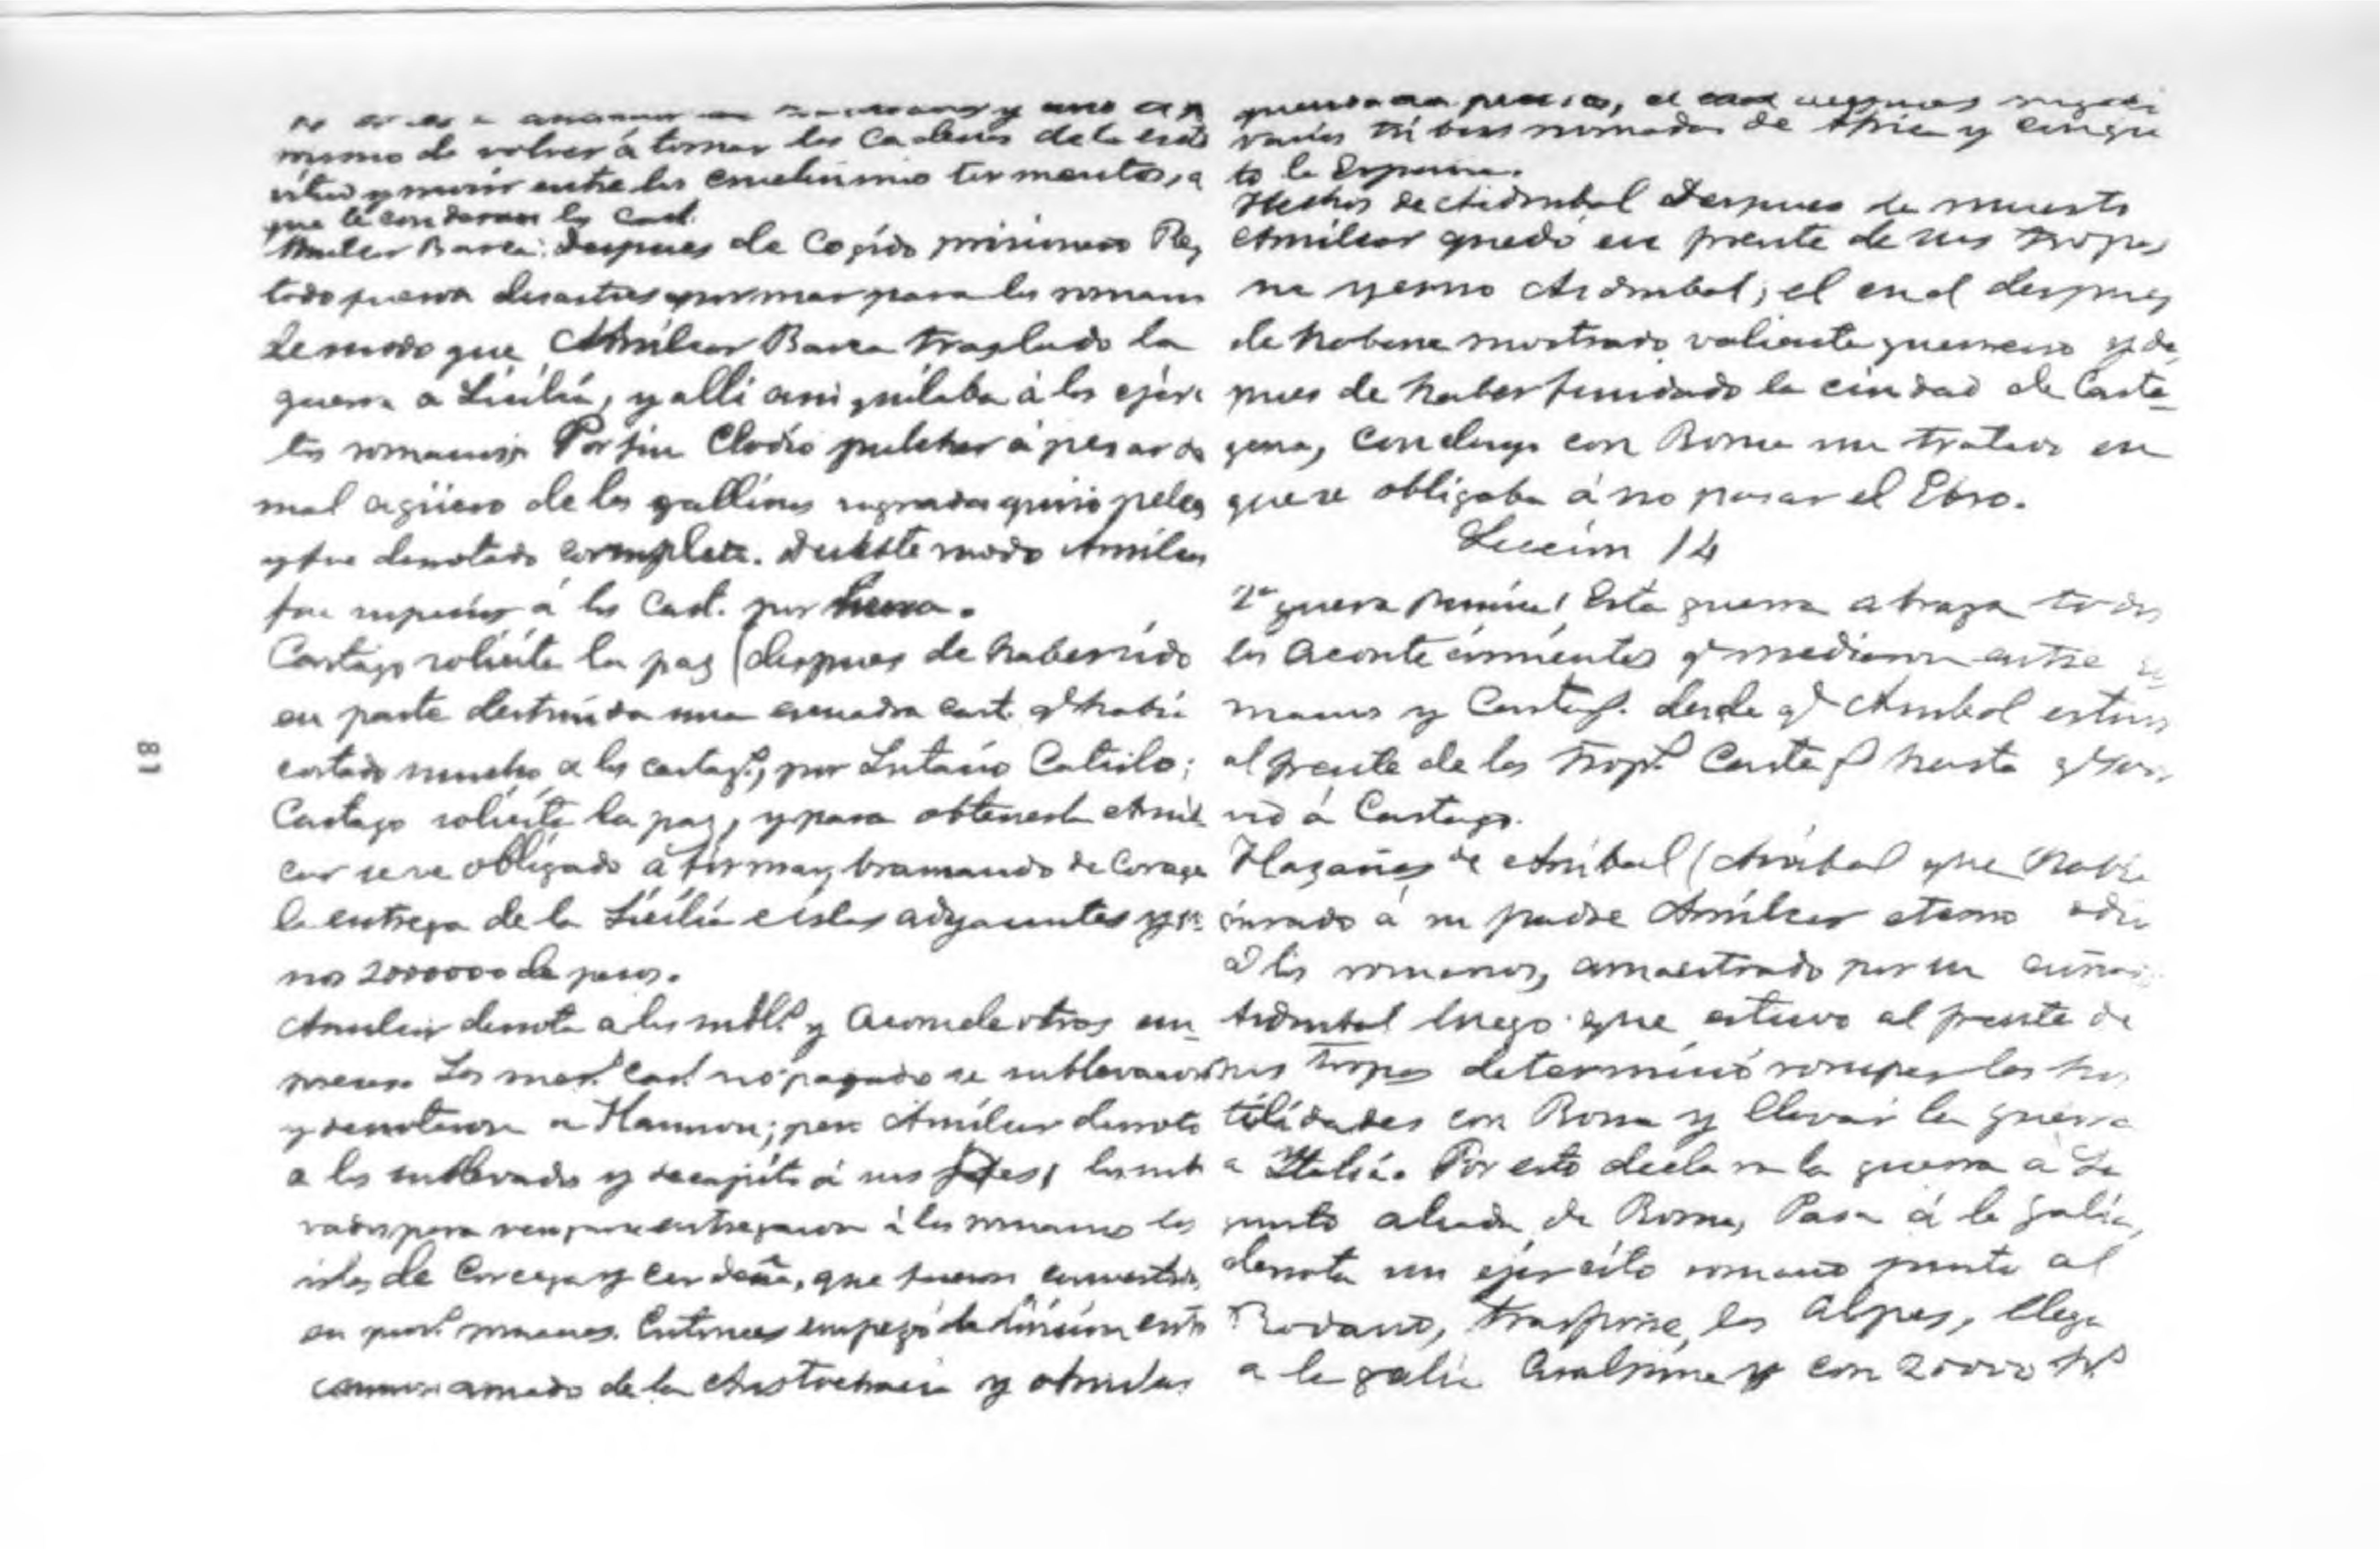 mismo de volver á tomar las cadenas de la escla
vitud y morir entre los cruelisimos tormentos, a
que le condenaron los Cart.
Amilcar Barca: Despues de cogido prisionero Reg
todo fueron desastres por mar para los romanos
de modo que Amilcar Barca traslado la
guerra a Sicilia, y alli aniquilaba á los ejerci
tos romanos. Por fin Clodio pulcher á pesar de
mal agüero de las gallinas sagradas quiso pelea
y fue derrotado complete. De este modo Amilcar
fue superior á los Cart. por tierra.
Cartago solicita la paz (despues de haber sido
en parte destruida una escuadra cart. q. habia
costado mucho a los cartag., por Lutacio Catulo;
Cartago solicita la paz, y para obtenerla Amil
car se ve obligado á firmar, bramando de corage
la entrega de la Sicilia e islas adyacentes y
nos 2000000 de pesos.
Amilcar derrota a los subl. y acomete otras em
presas. Los mer. Cart. no pagados se sublevaron
y derrotaron a Hannon; pero Amilcar derrota
a los sublevados y decapita á sus jefes; los sub
vados para vengarse entregaron á los romanos las
islas de Corcega y Cerdeña, que fueron convertidas
en prov. romanas. Entonces empezó la disension entre
de la Aristocracia y
varias tribus nomadas de Africa y conquis
to la España.
Hechos de Asdrubal Despues de muerto
Amilcar quedó en frente de sus tropas
su yerno Asdrubal; el cual despues
de haberse mostrado valiente guerrero y des
pues de haber fundado la ciudad de Carta-
gena, concluyo con Roma un tratado en
que se obligaba á no pasar el Ebro.
Leccion 14
2ª guerra Punica: Esta guerra abraza todos
los acontecimientos q. mediaron entre
manos y Cartag. desde q. Anibal estuvo
al frente de las trop. Cartag. hasta q.
vió á Cartago.
Hazañas de Anibal (Anibal que habia
jurado á su padre Amilcar eterno odio
á los romanos, amaestrado por su cuñado
Asdrubal luego que estuvo al frente de
sus tropas determinó romper las hos
tilidades con Roma y llevar la guerra
a Italia. Por esto declara la guerra a Sa
gunto aliada de Roma, Pasa á la Galia,
derrota un ejercito romano junto al
Rodano, traspone los Alpes, llega
a la galia Cisalpina y con 20000
81